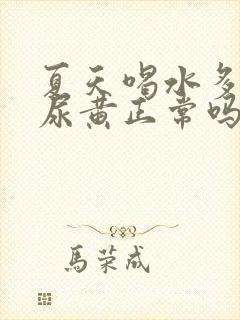 夏天喝水多
尿黄正常吗
馬荣成